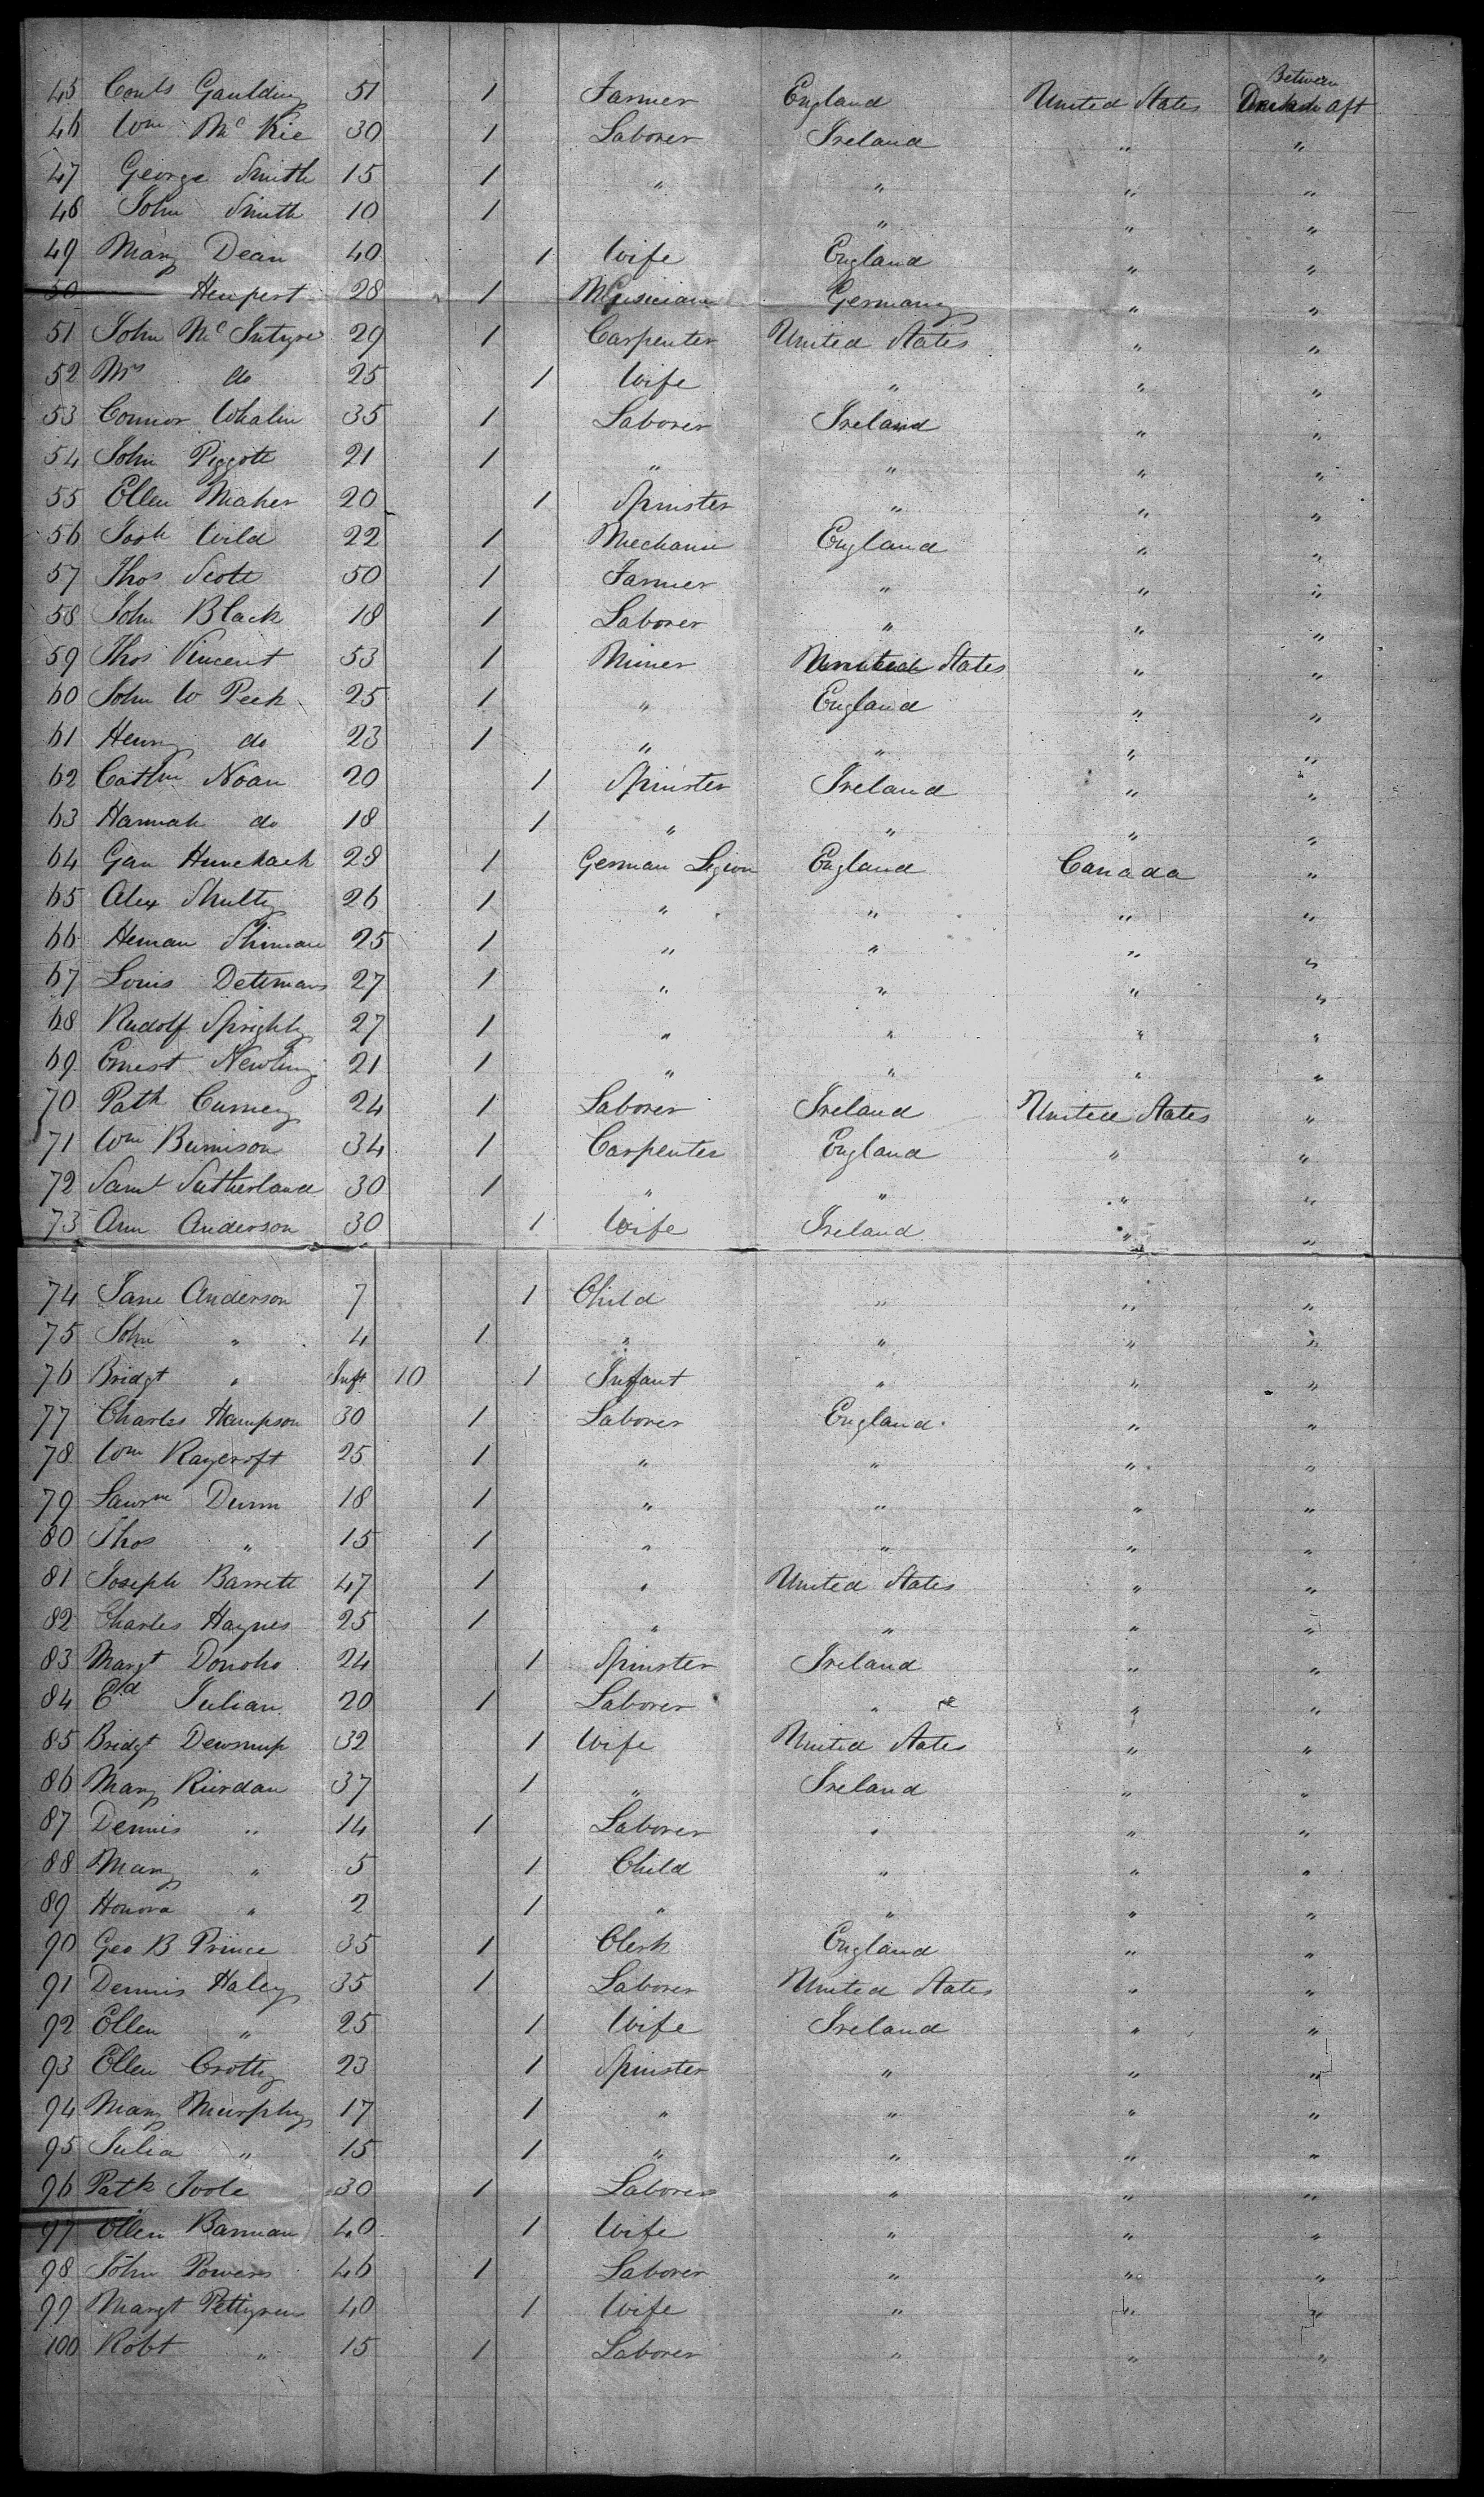 45 Couls Gaulding 51 1 Farmer England United States Between Decks Aft
46 Wm McKie 30 1 Laborer Ireland " "
47 George Smith 15 1 " " " "
48 John Smith 10 1 " " "
49 Mary Dean 40 1 Wife England " "
50 Heupert 28 1 Musician Germany " "
51 John McIntyre 29 1 Carpenter United States " "
52 Mrs do 25 1 Wife " " "
53 Connor Whalin 35 1 Laborer Ireland " "
54 John Piggott 21 1 " " " "
55 Ellen Maher 20 1 Spinster " " "
56 Josh Wild 22 1 Mechanic England " "
57 Thos Scott 50 1 Farmer " " "
58 John Black 18 1 Laborer " " "
59 Thos Vincent 53 1 Miner United States " "
60 John W Peek 25 1 " England " "
61 Henry do 23 1 " " " "
62 Cathne Noan 20 1 Spinster Ireland " "
63 Hannah do 18 1 " " " "
64 Gan 28 1 German Legion England Canada "
65 Alex Shultz 26 1 " " " "
66 Heman Shiman 25 1 " " " "
67 Louis Dettmans 27 1 " " " "
68 Rudolf Sprighty 27 1 " " " "
69 Ernest Newling 21 1 " " " "
70 Patk Curney 24 1 Laborer Ireland United States "
71 Wm Burnison 34 1 Carpenter England " "
72 Saml Sutherland 30 1 " " " "
73 Ann Anderson 30 1 Wife Ireland " "
74 Jane Anderson 7 1 Child " " "
75 John " 4 1 " " " "
76 Bridgt " Inft 10 1 Infant " " "
77 Charles Hampson 30 1 Laborer England " "
78 Wm Raycroft 25 1 " " " "
79 Lawrne Dunn 18 1 " " " "
80 Thos " 15 1 " " " "
81 Joseph Barrett 47 1 " United States " "
82 Charles Haynes 25 1 " " " "
83 Margt Donoho 24 1 Spinster Ireland " "
84 Ed Julian 20 1 Laborer " " "
85 Bridgt Dewsnup 32 1 Wife United States " "
86 Mary Riordan 37 1 " Ireland " "
87 Dennis " 14 1 Laborer " " "
88 Mary " 5 1 Child " " "
89 Honora " 2 1 " " " "
90 Geo B Prince 35 1 Clerk England " "
91 Dennis Haley 35 1 Laborer United States " "
92 Ellen " 25 1 Wife Ireland " "
93 Ellen Crotty 23 1 Spinster " " "
94 Mary Murphy 17 1 " " " "
95 Julia " 15 1 " " " "
96 Patk Toole 30 1 Laborer " " "
97 Ellen Bannan 40 1 Wife " " "
98 John Powers 46 1 Laborer " " "
99 Margt Pettigrew 40 1 Wife " " "
100 Robt " 15 1 Laborer " " "